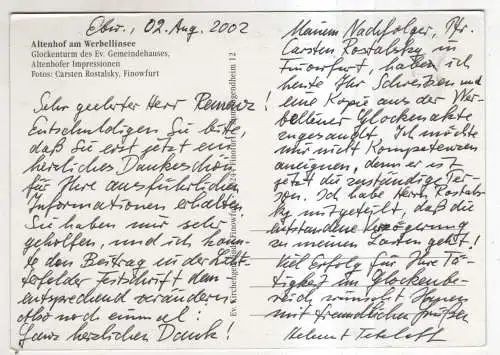 Ebw., 02. Aug. 2002
Altenhof am Werbellinsee
Glockenturm des Ev. Gemeindehauses,
Altenhofer Impressionen
Fotos: Carsten Rostalsky, Finowfurt
Sehr geehrter Herr
Entschuldigen Sie bitte,
daß Sie erst jetzt ein
herzliches Dankeschön
für Ihre ausführlichen
Informationen erhalten.
Sie haben mir sehr
geholfen, und ich konn-
te den Beitrag in der Licht-
erfelder Festschrift dem-
entsprechend verändern
also noch einmal:
Ganz herzlichen Dank!
Ev. Kirchengemeinde Finowfurt, 16244 Finowfurt, 12
Meinem Nachfolger, Pfr.
Carsten Rostalsky in
Finowfurt, habe ich
heute Ihr Schreiben und
eine Kopie aus der Wer-
belliner Glockenakte
zugesandt. Ich möchte
mir nicht Kompetenzen
aneignen, denn er ist
jetzt die zuständige Per-
son. Ich habe Herrn Rostals-
ky mitgeteilt, daß die
entstandene Verzögerung
zu meinen Lasten geht!
Viel Erfolg für Ihre Tä-
tigkeit im Glockenbe-
reich wünscht Ihnen
mit freundlichen Grüßen
Helmut